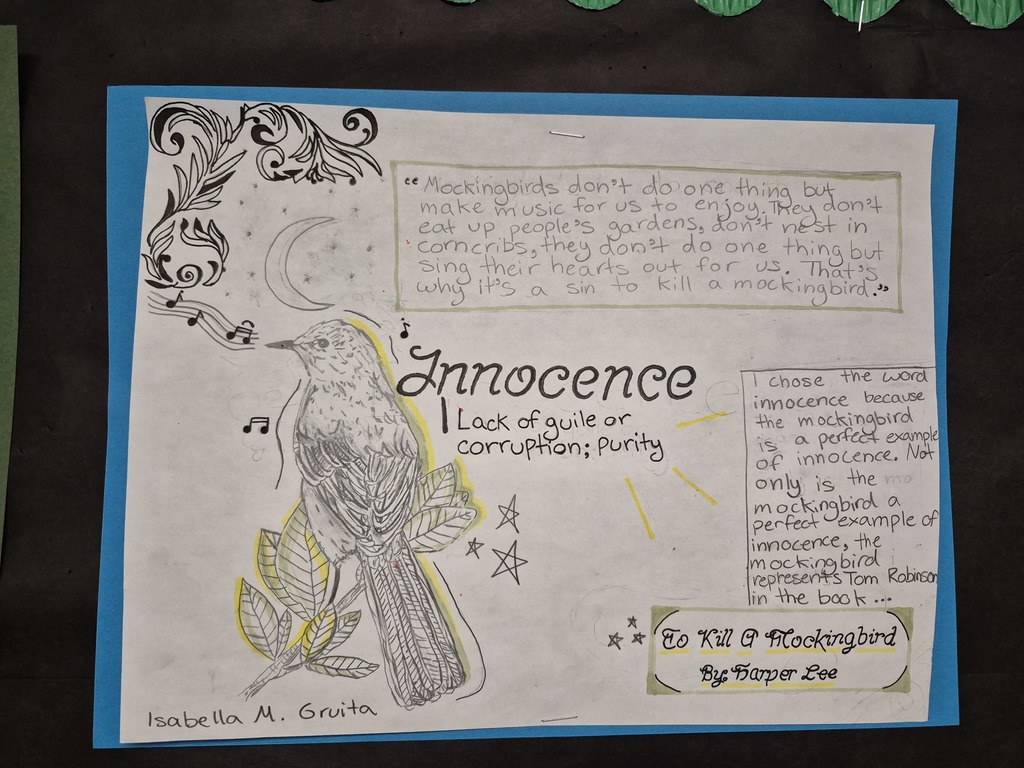 “Mockingbirds don't do one thing but
make music for us to enjoy. They don't
eat up people's gardens, don't nest in
corncribs, they don't do one thing but
sing their hearts out for us. That's
why it's a sin to kill a mockingbird.”
Innocence
Lack of guile or
corruption; Purity
I chose the word
innocence because
the mockingbird
is a perfect example
of innocence. Not
only is the
mockingbird a
perfect example of
innocence, the
mockingbird
represents Tom Robinson
in the book...
To Kill A Mockingbird
By: Harper Lee
Isabella M. Gruita